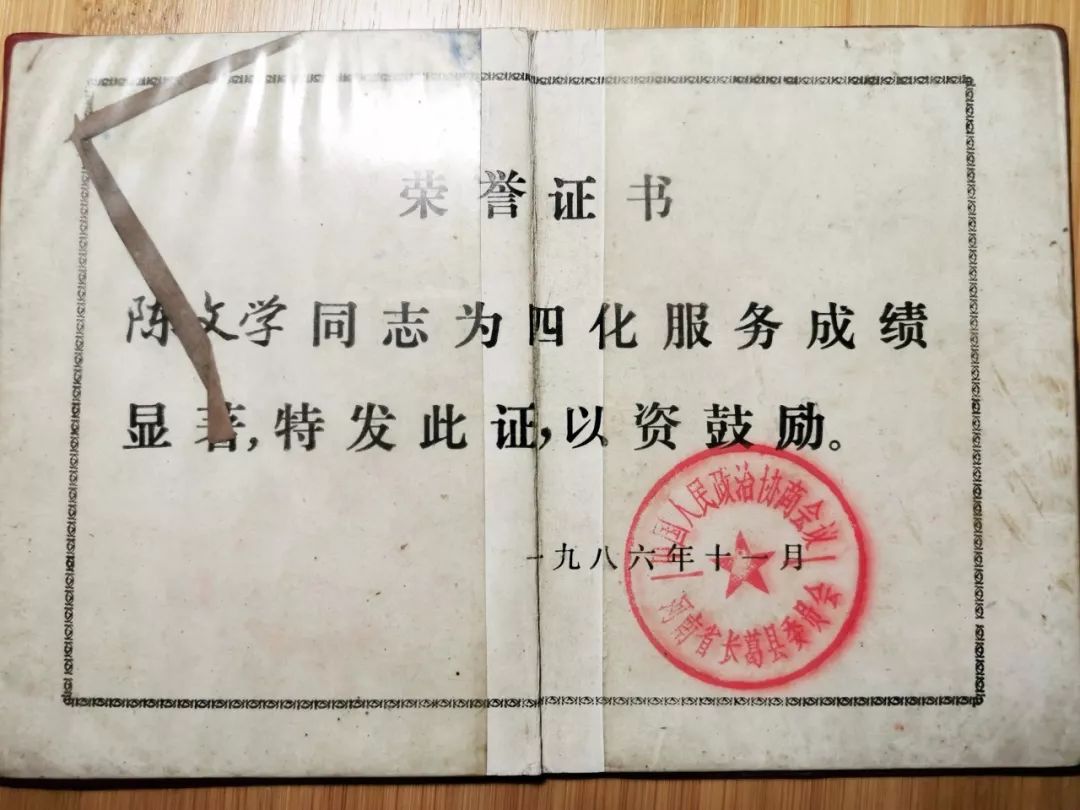 荣誉证书
陈文学同志为四化服务成绩
显著,特发此证,以资鼓励。
一九八六年十一月
中国人民政治协商会议
河南省长葛县委员会